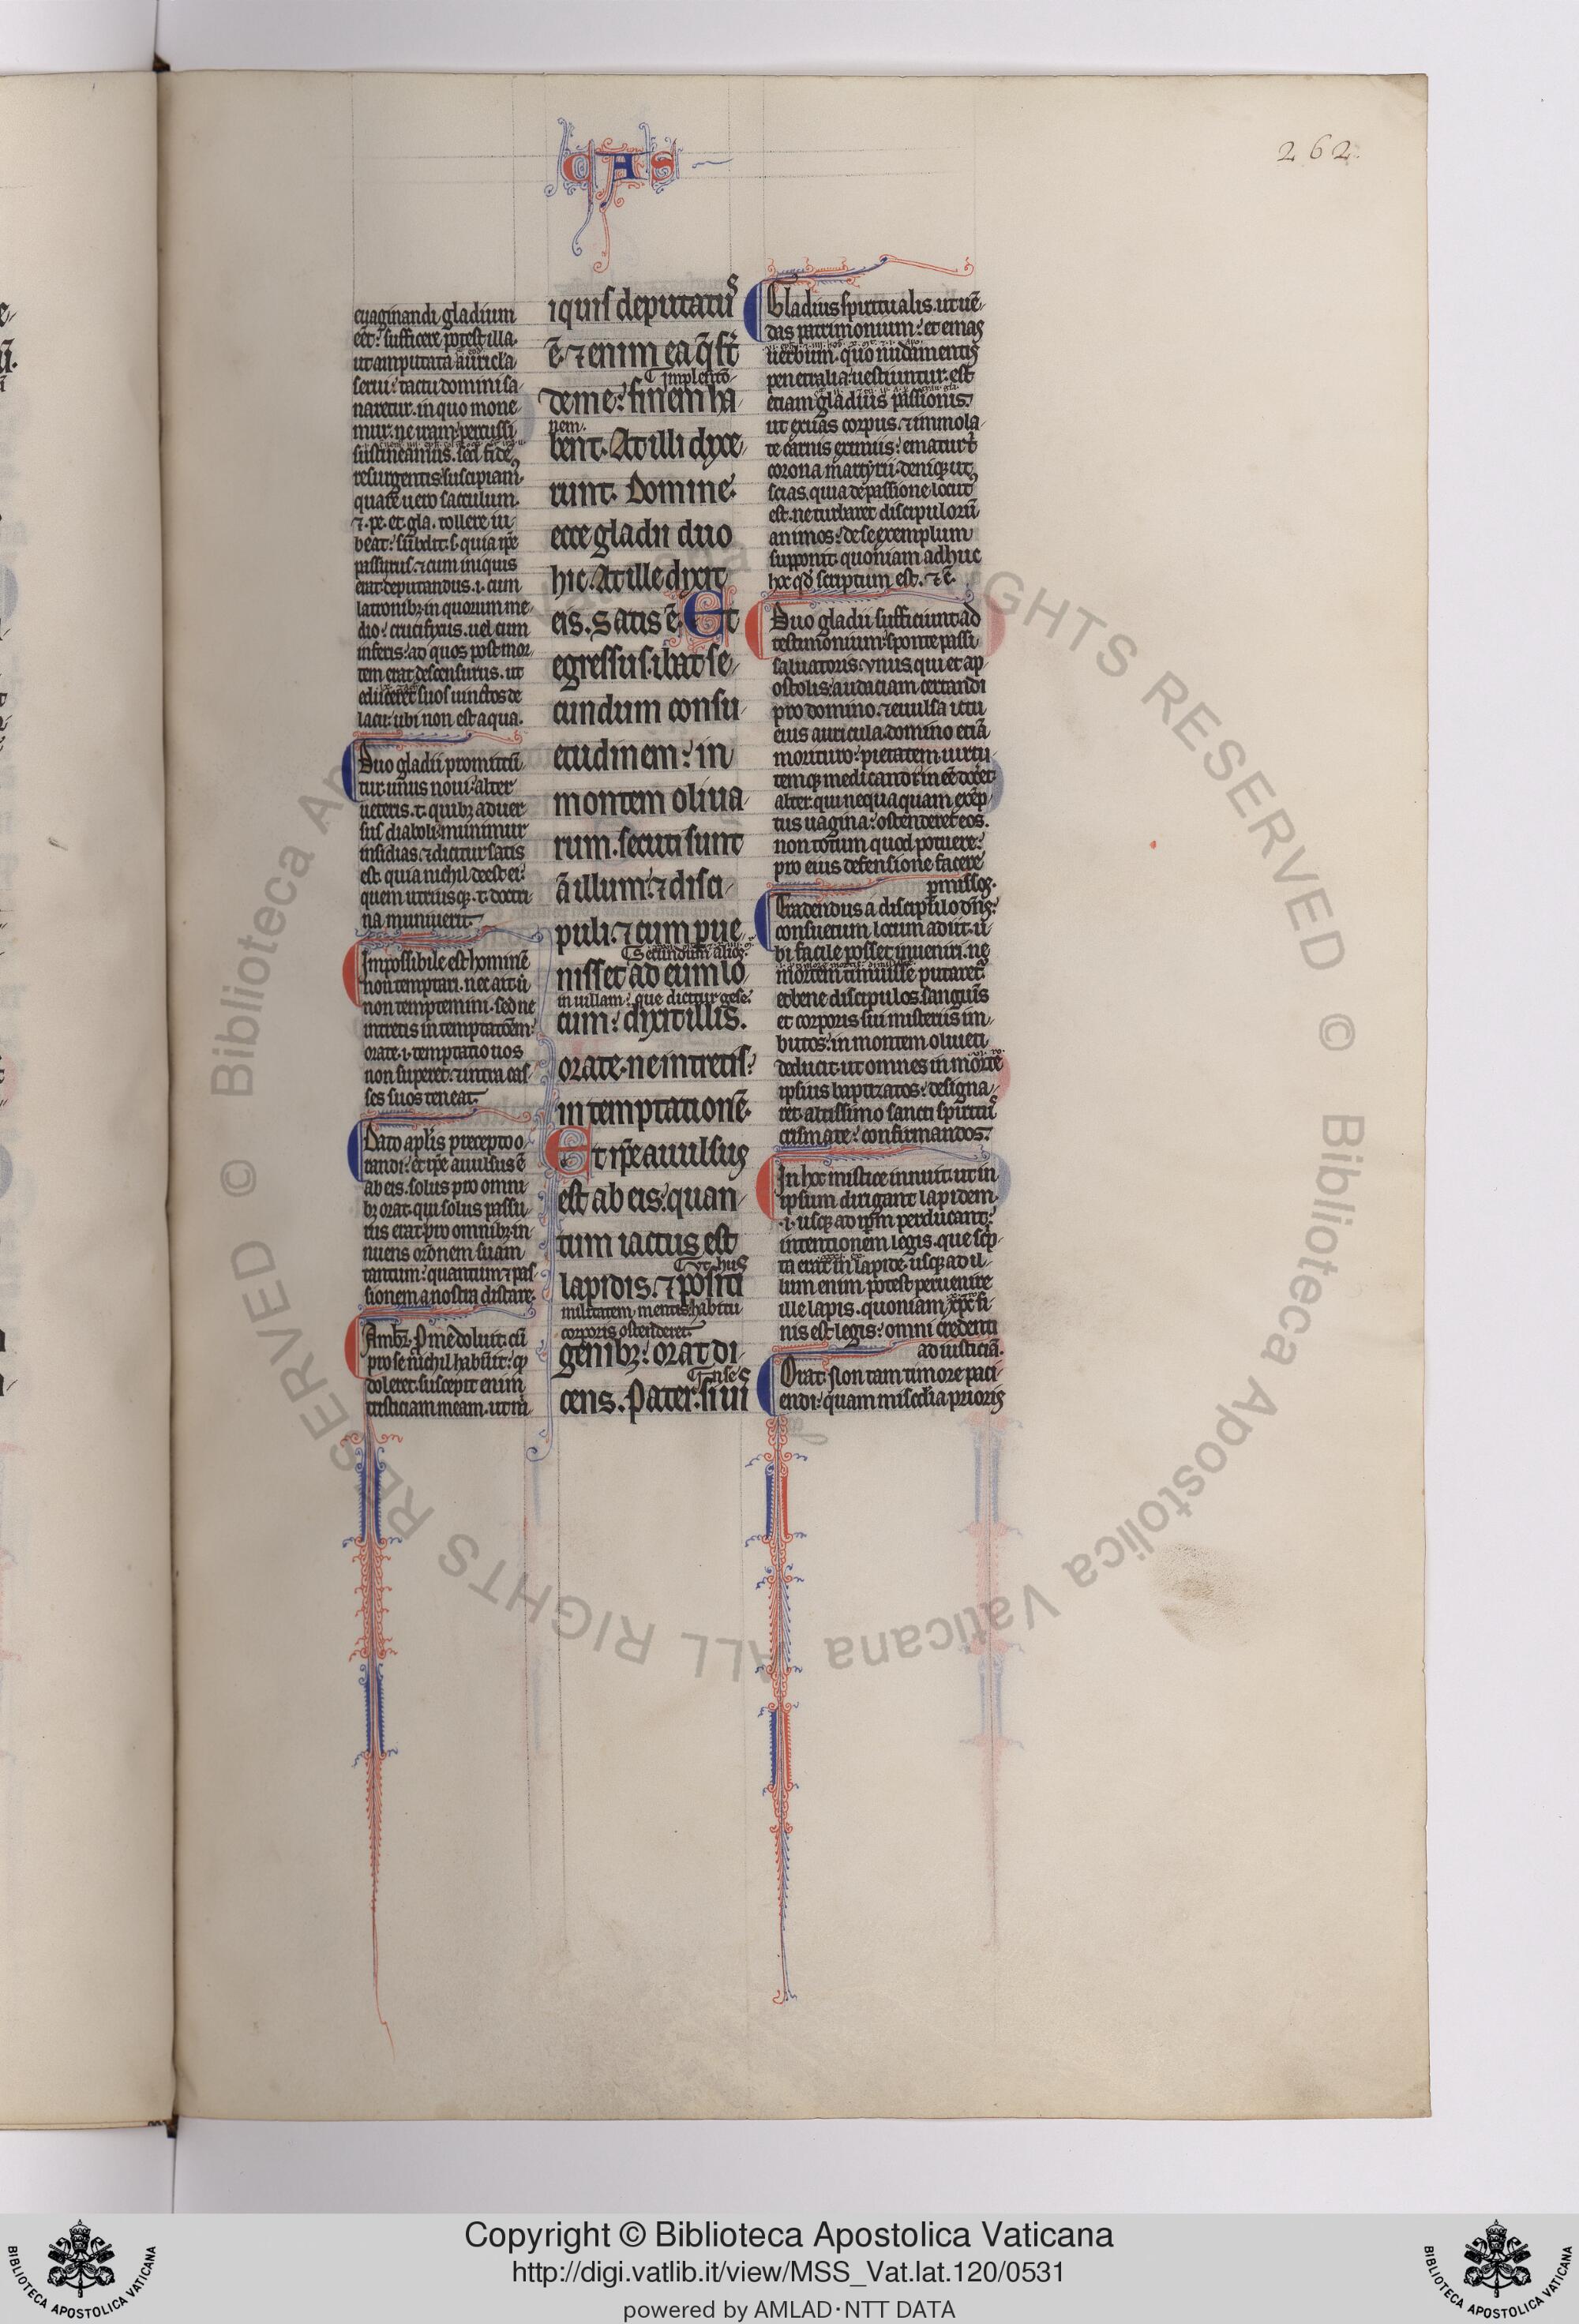 CAS
262.
euaginandi gladium
eēt: sufficere potest illa.
ut amputata auricla
serui: tactu domini sa
naretur. in quo mone
mur. ne
sustineamus. sed fide
resurgentis suscipiam.
quare uero sacculum.
⁊. pe. et gla. tollere iu
beat: subdit. s. quia ipe
passurus. ⁊ cum iniquis
erat deputandus. i. cum
latronibꝫ in quorum me
dio: crucifixus. uel cum
inferis: ad quos post mor
tem erat descensurus. ut
educeret suos uinctos de
lacu: ubi non est aqua.
Duo gladii promittū
tur. unus noui: alter
ueteris. t. quibꝫ aduer
sus diaboli munimur
insidias. ⁊ dicitur satis
est. quia nichil deest ei:
quem utriusqꝫ. t. doctri
na muniuerit.
Impossibile est hominē
non temptari. nec ait ū
non temptemini. sed ne
intretis in temptatōem:
orate. i. temptatio uos
non superet: ⁊ intra cas
ses suos teneat.
Dato aplis precepto o
randi: et ipe auulsus ē
ab eis. solus pro omni
bꝫ orat. qui solus passu
rus erat pro omnibꝫ. in
nuens oronem suam
tantum: quantum ⁊ pas
sionem a nostra distare.
Ambꝛ. P me doluit. cū
pro se nichil habuit: qꝫ
doleret. suscepit enim
tristiciam meam. ut m
iquis deputatus
ē. ⁊ enim ea q̄ st
⸿ impletio
de me: finem ha
nem.
bent. At illi dixe
runt. Domine:
ecce gladii duo
hic. At ille dixit
eis. Satis ē. Et
egressus. ibat se
cundum consu
etudinem: in
montem oliua
rum. secuti sunt
ā illum: ⁊ disci
puli. ⁊ cum pue
⸿ Secundum alios:
nisset ad eum lo
in uillam: que dicitur gese:
cum: dixit illis.
orate. ne intretis:
in temptationē.
Et ipe auulsus
est ab eis: quan
tum iactus est
⸿ vt hu
lapidis. ⁊ positi
militatem mentis habitu
corporis ostenderet.
genibꝫ: orat di
cens. Pater. si ui
Gladius spiritualis. ut uē
das patrimonium: et emas
uerbum. quo nuda mentis
penetralia: uestiuntur. est
etiam gladius passionis:
ut exuas corpus. ⁊ immola
te carnis exuuiis: ematur t̄
corona martyrii. deniqꝫ ut
scias. quia de passione locut
est. ne turbaret discipulorū
animos: de se exemplum
supponit. quoniam adhuc
hoc qd scriptum est. ⁊ē.
Duo gladii sufficiunt ad
testimonium: sponte passi
saluatoris: vnus. qui et ap
ostolis: audaciam certandi
pro domino. ⁊ euulsa ictu
eius auricula. domino etiā
morituro: pietatem. uirtu
temqꝫ medicandi inēē doceret:
alter. qui nequaquam exēp
tus uagina: ostenderet eos.
non totum quod potuere:
pro eius defensione facere
pmissos.
Tradendus a discipulo dns:
consuetum locum adiit. u
bi facile posset inueniri. ne
mortem timuisse putaret.
et bene discipulos. sanguis
et corporis sui misteriis im
butos: in montem oliueti
deducit. ut omnes in morte
ipsius baptizatos: designa
ret. altissimo sancti spiritus
crismate: confirmandos.
In hoc mistice innuit. ut in
ipsum dirigant lapidem.
.i. usqꝫ ad ipm perducant:
intentionem legis. que scp
ta erat in lapide. usqꝫ ad il
lum enim. potest peruenire
ille lapis. quoniam xpc fi
nis est legis: omni credenti
ad iusticiā.
Orat. Non tam timore paci
endi: quam misedia prioris
© Biblioteca Apostolica Vaticana ALL RIGHTS RESERVED © Biblioteca Apostolica Vaticana ALL RIGHTS RESERVED
Copyright © Biblioteca Apostolica Vaticana
http://digi.vatlib.it/view/MSS_Vat.lat.120/0531
powered by AMLAD·NTT DATA
BIBLIOTECA APOSTOLICA VATICANA
BIBLIOTECA APOSTOLICA VATICANA